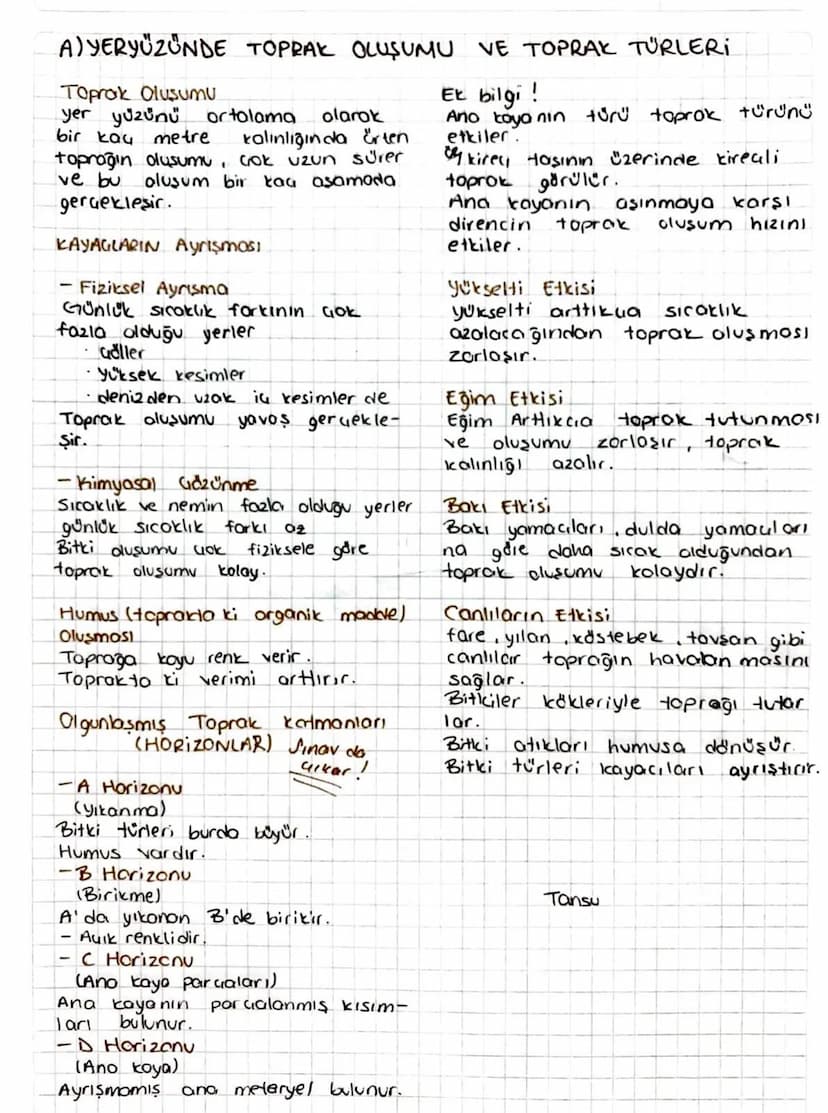 A) YERYÜZÜNDE TOPRAK OLUŞUMU VE TOPRAK TÜRLERİ
Toprak Oluşumu
yer yüzünü ortalama olarak
bir kaç metre kalınlığında örten
toprağın oluşumu, çok uzun sürer
ve bu oluşum bir kaç aşamada
gerçekleşir.
KAYAÇLARIN Ayrışması
- Fiziksel Ayrışma
Günlük sıcaklık farkının çok
fazla olduğu yerler
· çöller
· yüksek kesimler
· denizden uzak iç kesimler de
Toprak oluşumu yavaş gerçekle-
şir.
- Kimyasal Çözünme
Sıcaklık ve nemin fazla olduğu yerler
günlük sıcaklık farkı az
Bitki oluşumu çok fiziksele göre
toprak oluşumu kolay.
Humus (toprakta ki organik madde)
Oluşması
Toprağa koyu renk verir.
Toprakta ki verimi arttırır.
Olgunlaşmış Toprak Katmanları
(HORİZONLAR) Sınav da
çıkar!
- A Horizonu
(Yıkanma)
Bitki türleri burda büyür.
Humus vardır.
- B Horizonu
(Birikme)
A'da yıkanan B'de birikir.
- Açık renklidir.
- C Horizonu
(Ana kaya parçaları)
Ana kayanın parçalanmış kısım-
ları bulunur.
- D Horizonu
(Ana kaya)
Ayrışmamış ana meteryel bulunur.
Ek bilgi!
Ana kayanın türü toprak türünü
etkiler.
Ör/ kireç taşının üzerinde kireçli
toprak görülür.
Ana kayanın aşınmaya karşı
direncin toprak oluşum hızını
etkiler.
Yükselti Etkisi
yükselti arttıkça sıcaklık
azalacağından toprak oluşması
zorlaşır.
Eğim Etkisi
Eğim Arttıkça toprak tutunması
ve oluşumu zorlaşır, toprak
kalınlığı azalır.
Bakı Etkisi
Bakı yamaçları, dulda yamaçları
na göre daha sıcak olduğundan
toprak oluşumu kolaydır.
Canlıların Etkisi
fare, yılan, köstebek, tavşan gibi
canlılar toprağın havalanmasını
sağlar.
Bitkiler kökleriyle toprağı tutar
lar.
Bitki atıkları humusa dönüşür.
Bitki türleri kayaçları ayrıştırır.
Tansu